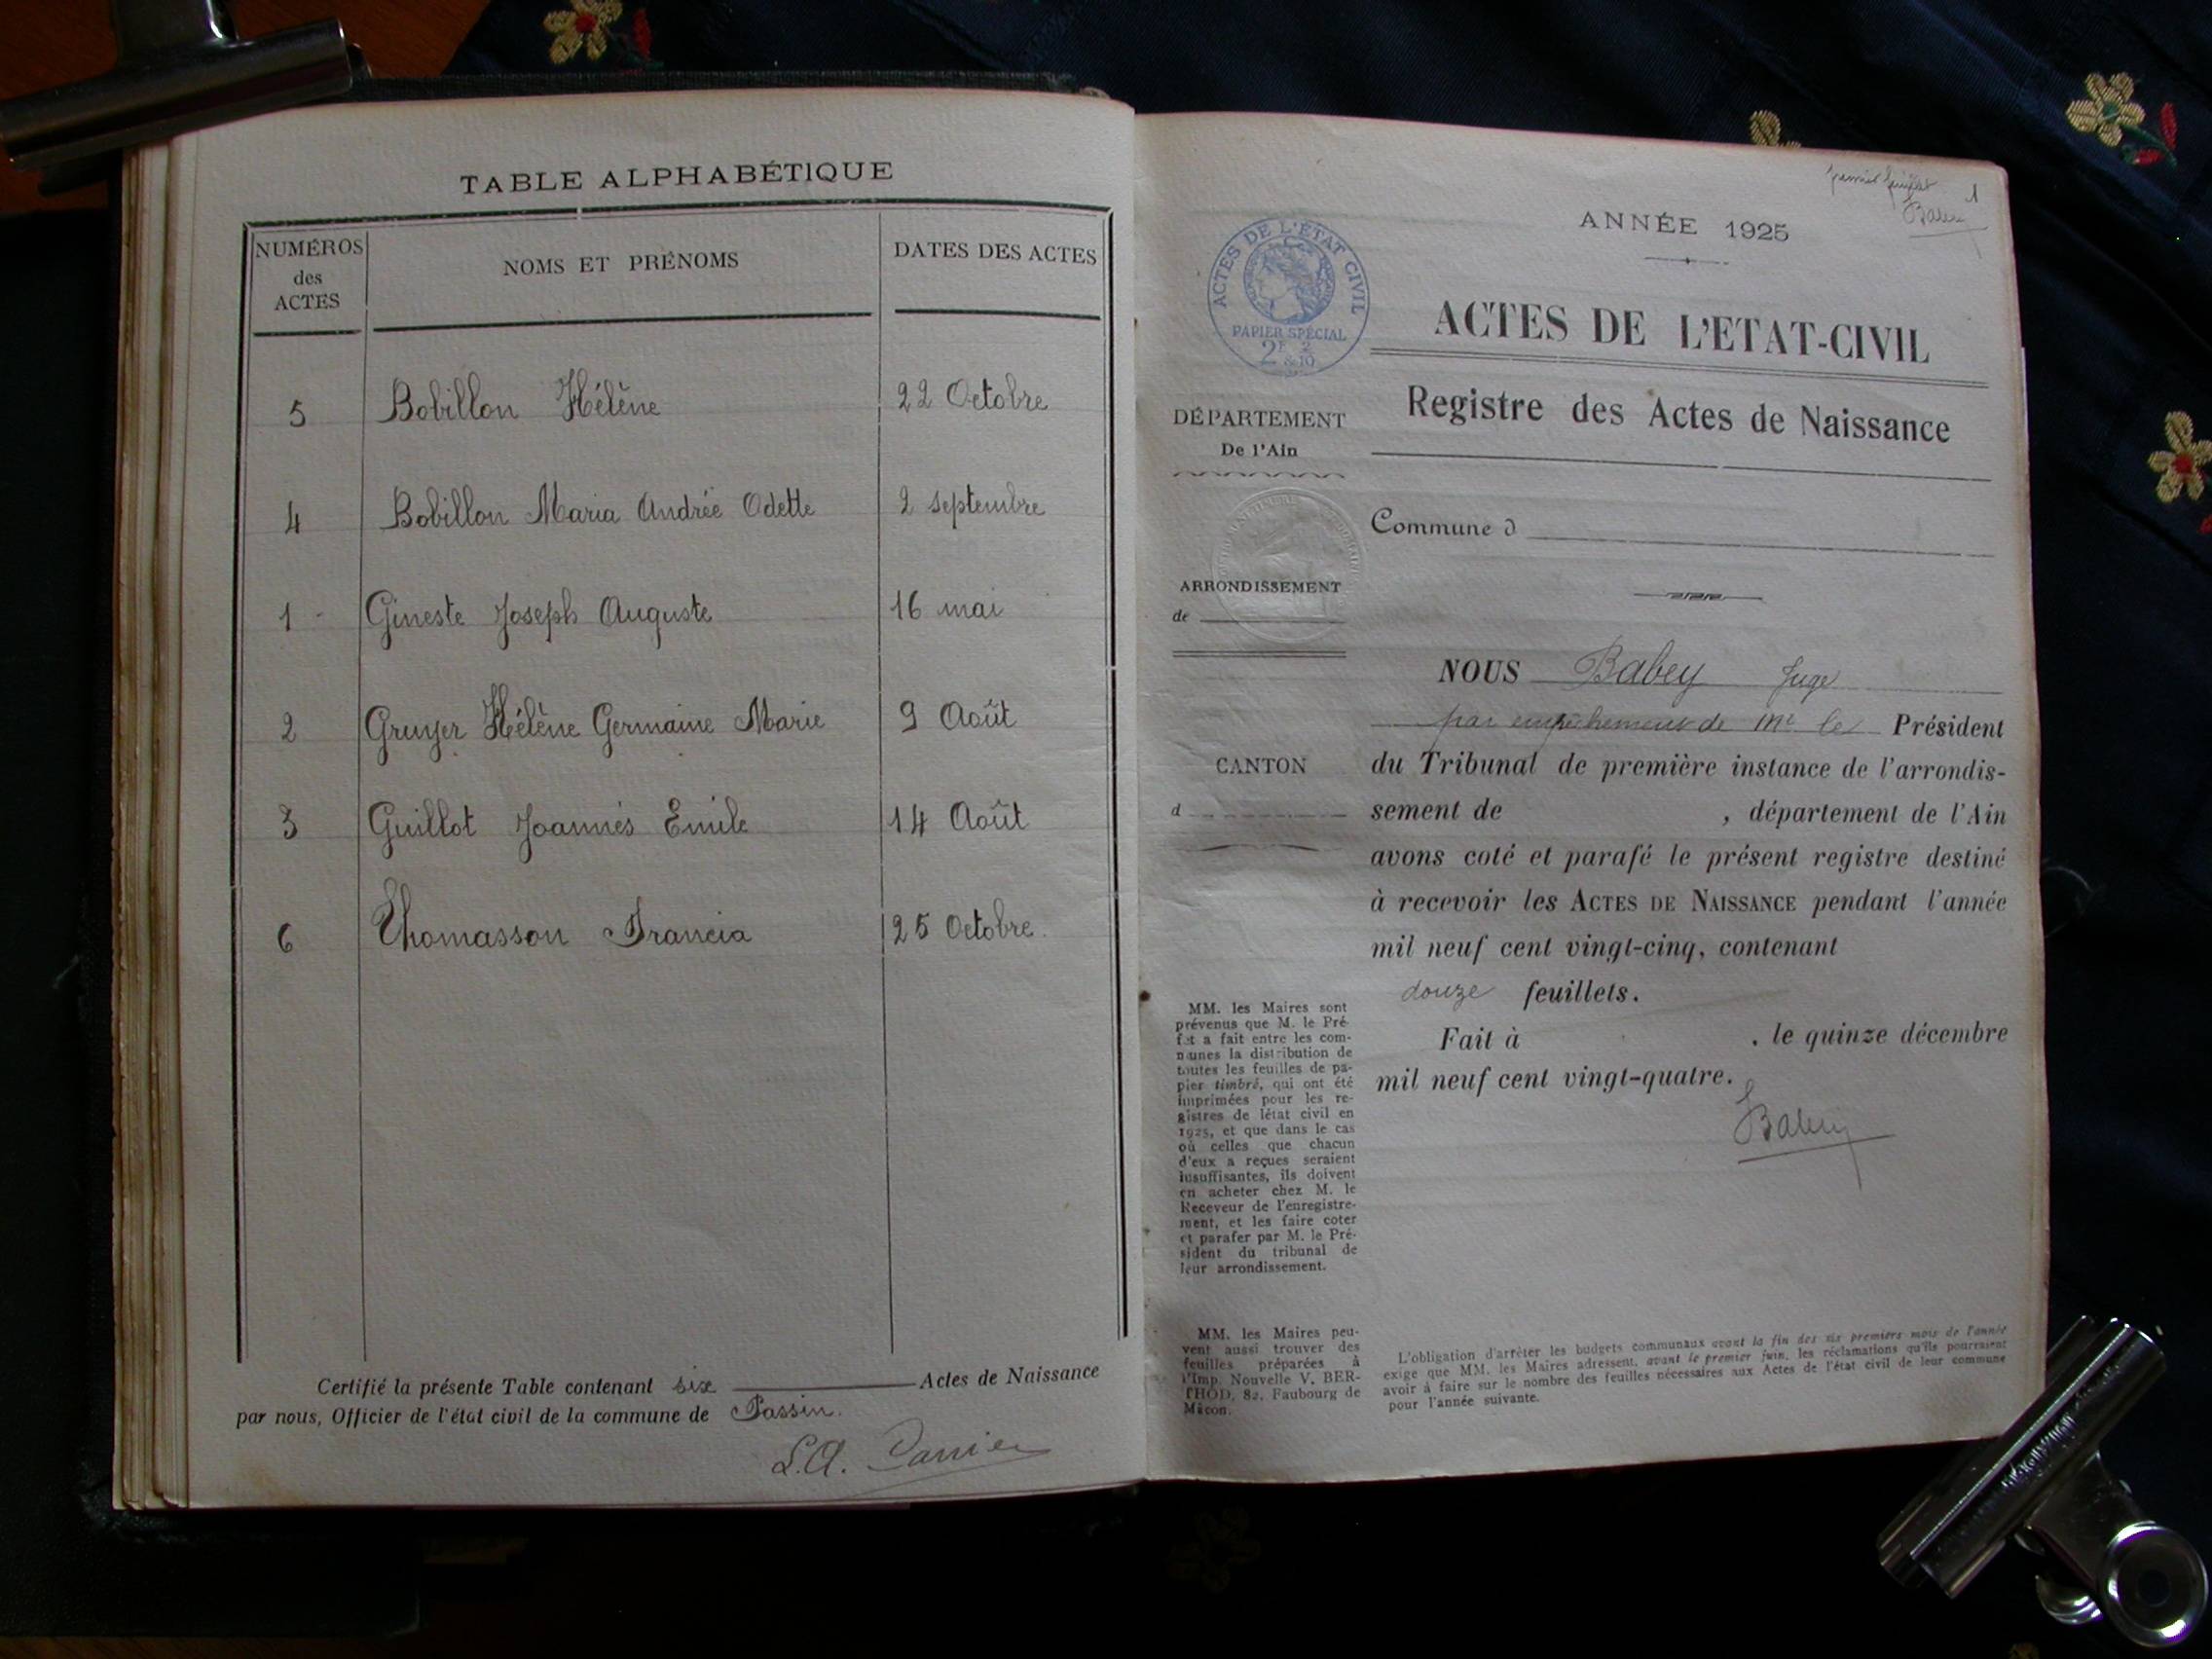 TABLE ALPHABÉTIQUE
NUMÉROS
des
ACTES
NOMS ET PRÉNOMS
DATES DES ACTES
5 Bobillon Hélène 22 Octobre
4 Bobillon Maria Andrée Odette 2 septembre
1 Gineste Joseph Auguste 16 mai
2 Gruyer Hélène Germaine Marie 9 Août
3 Guillot Joannès Emile 14 Août
6 Thomasson Francia 25 Octobre.
Certifié la présente Table contenant six Actes de Naissance
par nous, Officier de l'état civil de la commune de Passin.
premier feuillet 1
Babey
ANNÉE 1925
ACTES DE L'ÉTAT CIVIL
PAPIER SPÉCIAL
2F 2
&10
ACTES DE L'ETAT-CIVIL
Registre des Actes de Naissance
DÉPARTEMENT
De l'Ain
Commune d
ARRONDISSEMENT
de
CANTON
d
NOUS Babey Juge
par empêchement de Mr le Président
du Tribunal de première instance de l'arrondis-
sement de , département de l'Ain
avons coté et parafé le présent registre destiné
à recevoir les ACTES DE NAISSANCE pendant l'année
mil neuf cent vingt-cinq, contenant
douze feuillets.
Fait à . le quinze décembre
mil neuf cent vingt-quatre.
Babey
MM. les Maires sont
prévenus que M. le Pré-
fet a fait entre les com-
munes la distribution de
toutes les feuilles de pa-
pier timbré, qui ont été
imprimées pour les re-
gistres de létat civil en
1925, et que dans le cas
où celles que chacun
d'eux a reçues seraient
insuffisantes, ils doivent
en acheter chez M. le
Receveur de l'enregistre-
ment, et les faire coter
et parafer par M. le Pré-
sident du tribunal de
leur arrondissement.
MM. les Maires peu-
vent aussi trouver des
feuilles préparées à
l'Imp. Nouvelle V. BER-
THOD, 82, Faubourg de
Mâcon.
L'obligation d'arrêter les budgets communaux avant la fin des six premiers mois de l'année
exige que MM. les Maires adressent, avant le premier juin, les réclamations qu'ils pourraient
avoir à faire sur le nombre des feuilles nécessaires aux Actes de l'état civil de leur commune
pour l'année suivante.